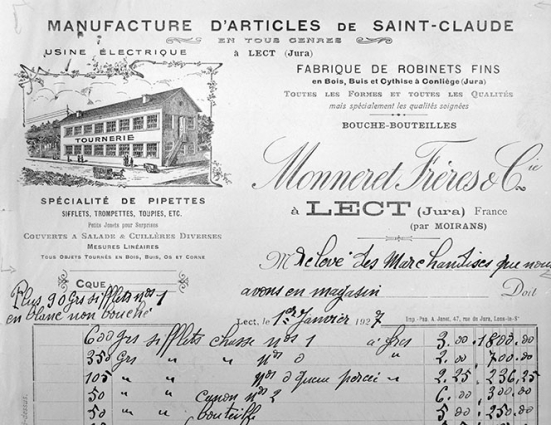 MANUFACTURE D'ARTICLES DE SAINT-CLAUDE
EN TOUS GENRES
USINE ÉLECTRIQUE
à LECT (Jura)
FABRIQUE DE ROBINETS FINS
en Bois, Buis et Cythise à Conliège (Jura)
TOUTES LES FORMES ET TOUTES LES QUALITÉS
mais spécialement les qualités soignées
BOUCHE-BOUTEILLES
TOURNERIE
Monneret Frères & Cie
à LECT (Jura) France
(par MOIRANS)
SPÉCIALITÉ DE PIPETTES
SIFFLETS, TROMPETTES, TOUPIES, ETC.
Petits Jouets pour Surprises
COUVERTS A SALADE & CUILLÈRES DIVERSES
MESURES LINÉAIRES
TOUS OBJETS TOURNÉS EN BOIS, BUIS, OS ET CORNE
M Relevé des Marchandises que nous
avons en magasin Doit
CQUE
Plus 90 grs sifflets nos 1
en blanc non bouché
Lect, le 1er Janvier 1927
Imp. Pap. A. Janet, 47, rue du Jura, Lons-le-Sr
600 grs sifflets chasse nos 1 à grs 3.00 1800.00
350 grs " " nos 0 " 2.00 700.00
105 " " nos 0 queue percée " 2.25 236,25
50 " " canon nos 2 6.00 300.00
50 " " bouteille 5.00 250.00